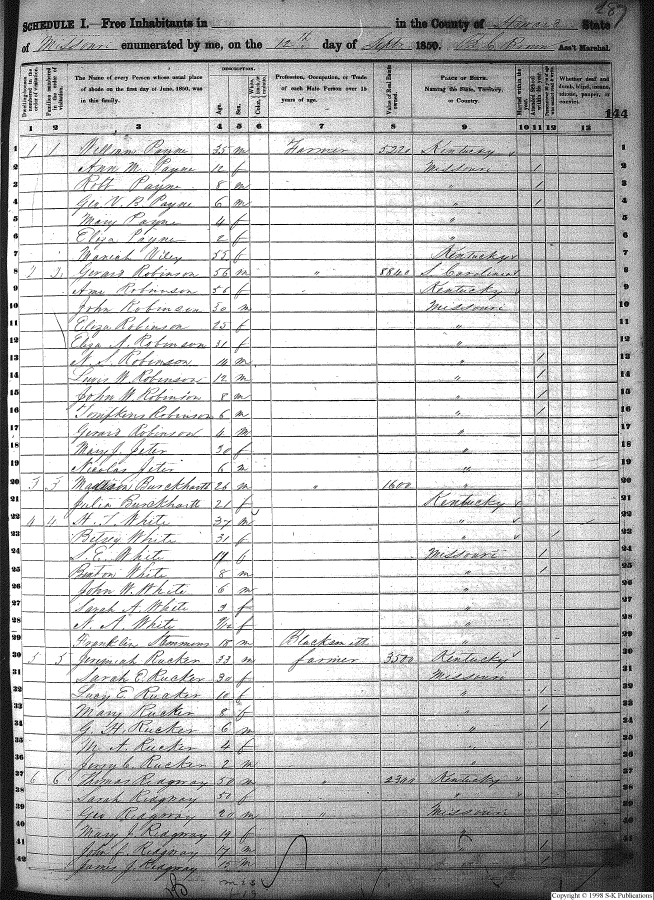 287
SCHEDULE I.—Free Inhabitants in in the County of Howard State
of Missouri enumerated by me, on the 12th day of Sept. 1850. Ass't Marshal.
144
Dwelling-houses numbered in the order of visitation. Families numbered in the order of visitation. The Name of every Person whose usual place of abode on the first day of June, 1850, was in this family. DESCRIPTION. Age. Sex. Color, Profession, Occupation, or Trade of each Male Person over 15 years of age. Value of Real Estate owned. PLACE OF BIRTH. Naming the State, Territory, or Country. Married within the year. Attended School within the year. Whether deaf and dumb, blind, insane, idiotic, pauper, or convict.
1 2 3 4 5 6 7 8 9 10 11 12 13
1 1 1 William Payne 35 m Farmer 5220 Kentucky 1
2 Ann M. Payne 10 f Missouri 1 2
3 Robt Payne 8 m " 1 3
4 Geo V. B. Payne 6 m " 1 4
5 Mary Payne 4 f " 5
6 Eliza Payne 2 f " 6
7 Wiley 55 f Kentucky 7
8 2 2 Gerard Robinson 56 m " 5840 S. Carolina 8
9 Robinson 56 f Kentucky 9
10 John Robinson 30 m Missouri 10
11 Eliza Robinson 25 f " 11
12 Eliza A. Robinson 31 f " 12
13 N. S. Robinson 14 m " 1 13
14 Lewis W. Robinson 12 m " 1 14
15 John W. Robinson 8 m " 1 15
16 Tompkins Robinson 6 m " 1 16
17 Gerard Robinson 4 m " 17
18 Mary J. Jeter 30 f " 18
19 Nicolas Jeter 6 m " 19
20 3 3 Burckhartt 26 m " 1600 " 20
21 Julia Burckhartt 21 f Kentucky 21
22 4 4 H. T. White 37 m " 22
23 Betsy White 31 f " 1 23
24 S. E. White f Missouri 1 24
25 Benton White 8 m " 1 25
26 John W. White 6 m " 26
27 Sarah A. White f " 27
28 N. A. White f " 28
29 Franklin Stemmons 18 m Blacksmith " 29
30 5 5 Jeremiah Rucker 33 m farmer 3500 Kentucky 30
31 Sarah E. Rucker 30 f Missouri 31
32 Lucy E. Rucker 10 f " 1 32
33 Mary Rucker 8 f " 1 33
34 G. H. Rucker 6 m " 1 34
35 M. A. Rucker 4 f " 35
36 Jerry C. Rucker 2 m " 36
37 6 6 Thomas Ridgway 50 m " 2300 Kentucky 37
38 Sarah Ridgway 50 f " 38
39 Geo Ridgway 20 m " Missouri 39
40 Mary J. Ridgway 19 f " 40
41 John S. Ridgway 17 m " 1 41
42 James J. Ridgway 15 m " 1 42
Copyright © 1998 S-K Publications